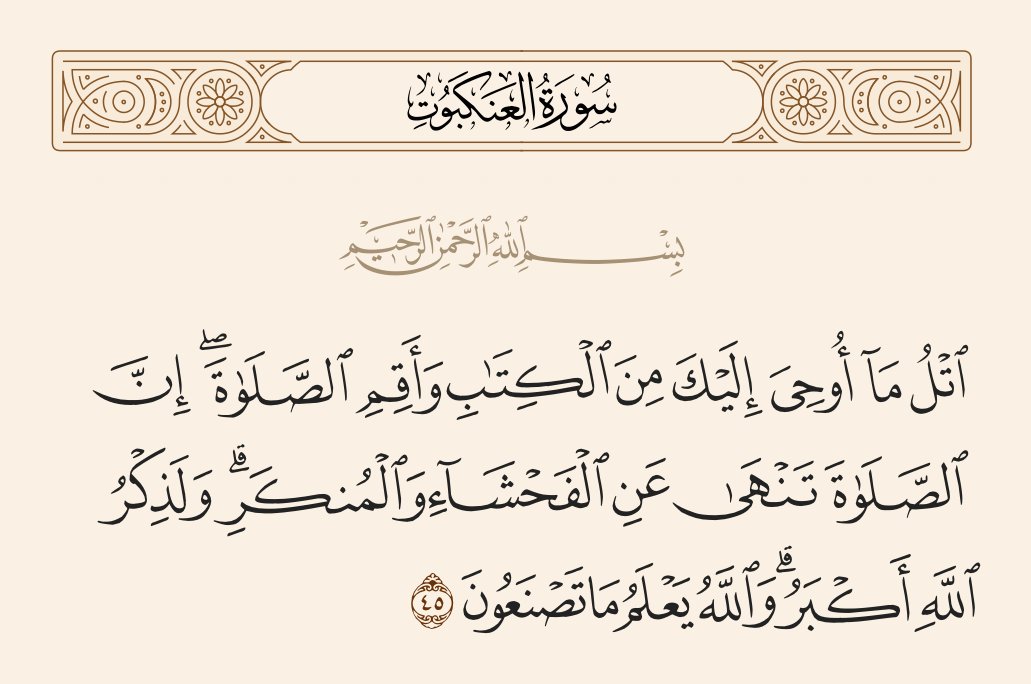 سُورَةُ الْعَنكَبُوتِ
بِسْمِ ٱللَّهِ ٱلرَّحْمَٰنِ ٱلرَّحِيمِ
ٱتْلُ مَآ أُوحِىَ إِلَيْكَ مِنَ ٱلْكِتَٰبِ وَأَقِمِ ٱلصَّلَوٰةَ ۖ إِنَّ
ٱلصَّلَوٰةَ تَنْهَىٰ عَنِ ٱلْفَحْشَآءِ وَٱلْمُنكَرِ ۗ وَلَذِكْرُ
ٱللَّهِ أَكْبَرُ ۗ وَٱللَّهُ يَعْلَمُ مَا تَصْنَعُونَ ٤٥